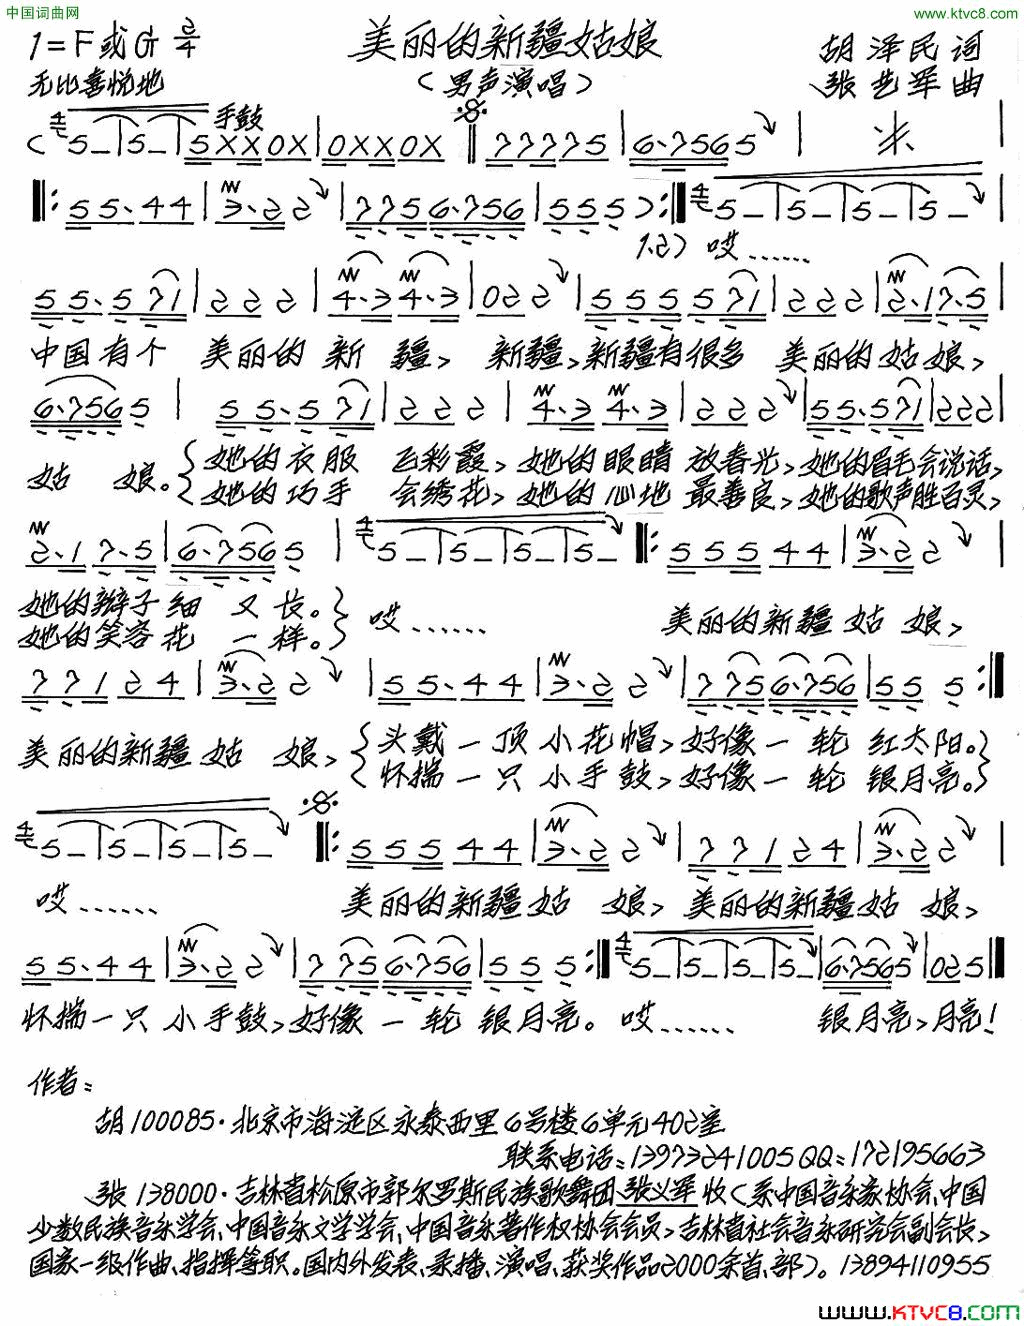 中国词曲网 www.ktvc8.com
1=F或G 2/4 美丽的新疆姑娘 胡泽民 词
无比喜悦地 (男声演唱) 张艺军 曲
手鼓
(5 _ | 5 _ | 5XX 0X | 0XX 0X ‖ 77775 | 6·7565 | 米 |
‖: 55·44 | 3·22 | 7756·756 | 555 ) :‖ 5 _ | 5 _ | 5 _ | 5 _ |
1.2) 哎……
55·571 | 222 | 4·34·3 | 022 | 555571 | 222 | 2·17·5 |
中国有个 美丽的 新 疆, 新疆,新疆有很多 美丽的姑娘,
6·7565 | 55·571 | 222 | 4·34·3 | 222 | 55·571 | 222 |
姑 娘。 她的衣服 飞彩霞,她的眼睛 放春光,她的眉毛会说话,
她的巧手 会绣花,她的心地 最善良,她的歌声胜百灵,
2·17·5 | 6·7565 | 5 _ | 5 _ | 5 _ | 5 _ ‖: 55544 | 3·22 |
她的辫子细 又长。 哎…… 美丽的新疆姑 娘,
她的笑容花 一样。
77124 | 3·22 | 55·44 | 3·22 | 7756·756 | 55 5 :‖
美丽的新疆姑 娘, 头戴一顶小花帽,好像一轮 红太阳。
怀揣一只小手鼓,好像一轮 银月亮。
5 _ | 5 _ | 5 _ | 5 _ ‖: 55544 | 3·22 | 77124 | 3·22 |
哎…… 美丽的新疆姑 娘,美丽的新疆姑 娘,
55·44 | 3·22 | 7756·756 | 555 :‖ 5 _ | 5 _ | 5 _ | 5 _ | 6·7565 | 025 ‖
怀揣一只 小手鼓,好像一轮 银月亮。 哎…… 银月亮,月亮!
作者:
胡100085·北京市海淀区永泰西里6号楼6单元402室
联系电话:13973241005 QQ:172195663
张138000·吉林省松原市郭尔罗斯民族歌舞团 张义军 收(系中国音乐家协会、中国
少数民族音乐学会、中国音乐文学学会、中国音乐著作权协会会员,吉林省社会音乐研究会副会长,
国家一级作曲、指挥等职。国内外发表、录播、演唱、获奖作品2000余首、部)。13894110955
www.KTVC8.com